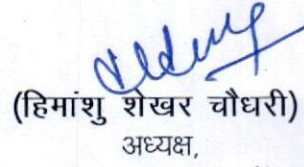 (हिमांशु शेखर चौधरी)
अध्यक्ष,